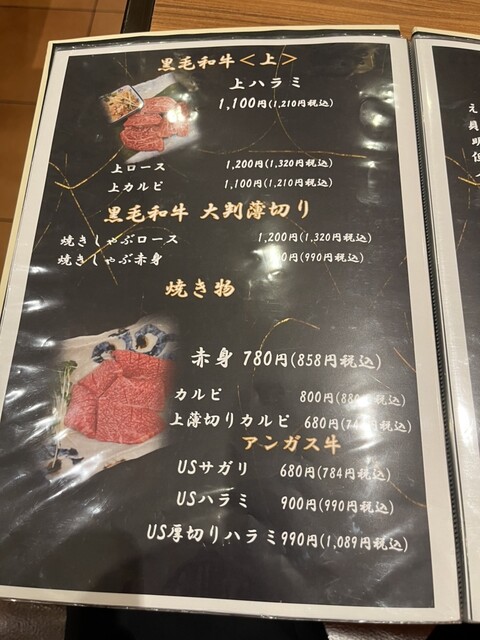 黒毛和牛<上>
上ハラミ
1,100円(1,210円税込)
上ロース 1,200円(1,320円税込)
上カルビ 1,100円(1,210円税込)
黒毛和牛 大判薄切り
焼きしゃぶロース 1,200円(1,320円税込)
焼きしゃぶ赤身 0円(990円税込)
焼き物
赤身 780円(858円税込)
カルビ 800円(880円税込)
上薄切りカルビ 680円(74 税込)
アンガス牛
USサガリ 680円(784円税込)
USハラミ 900円(990円税込)
US厚切りハラミ 990円(1,089円税込)
え
員
明